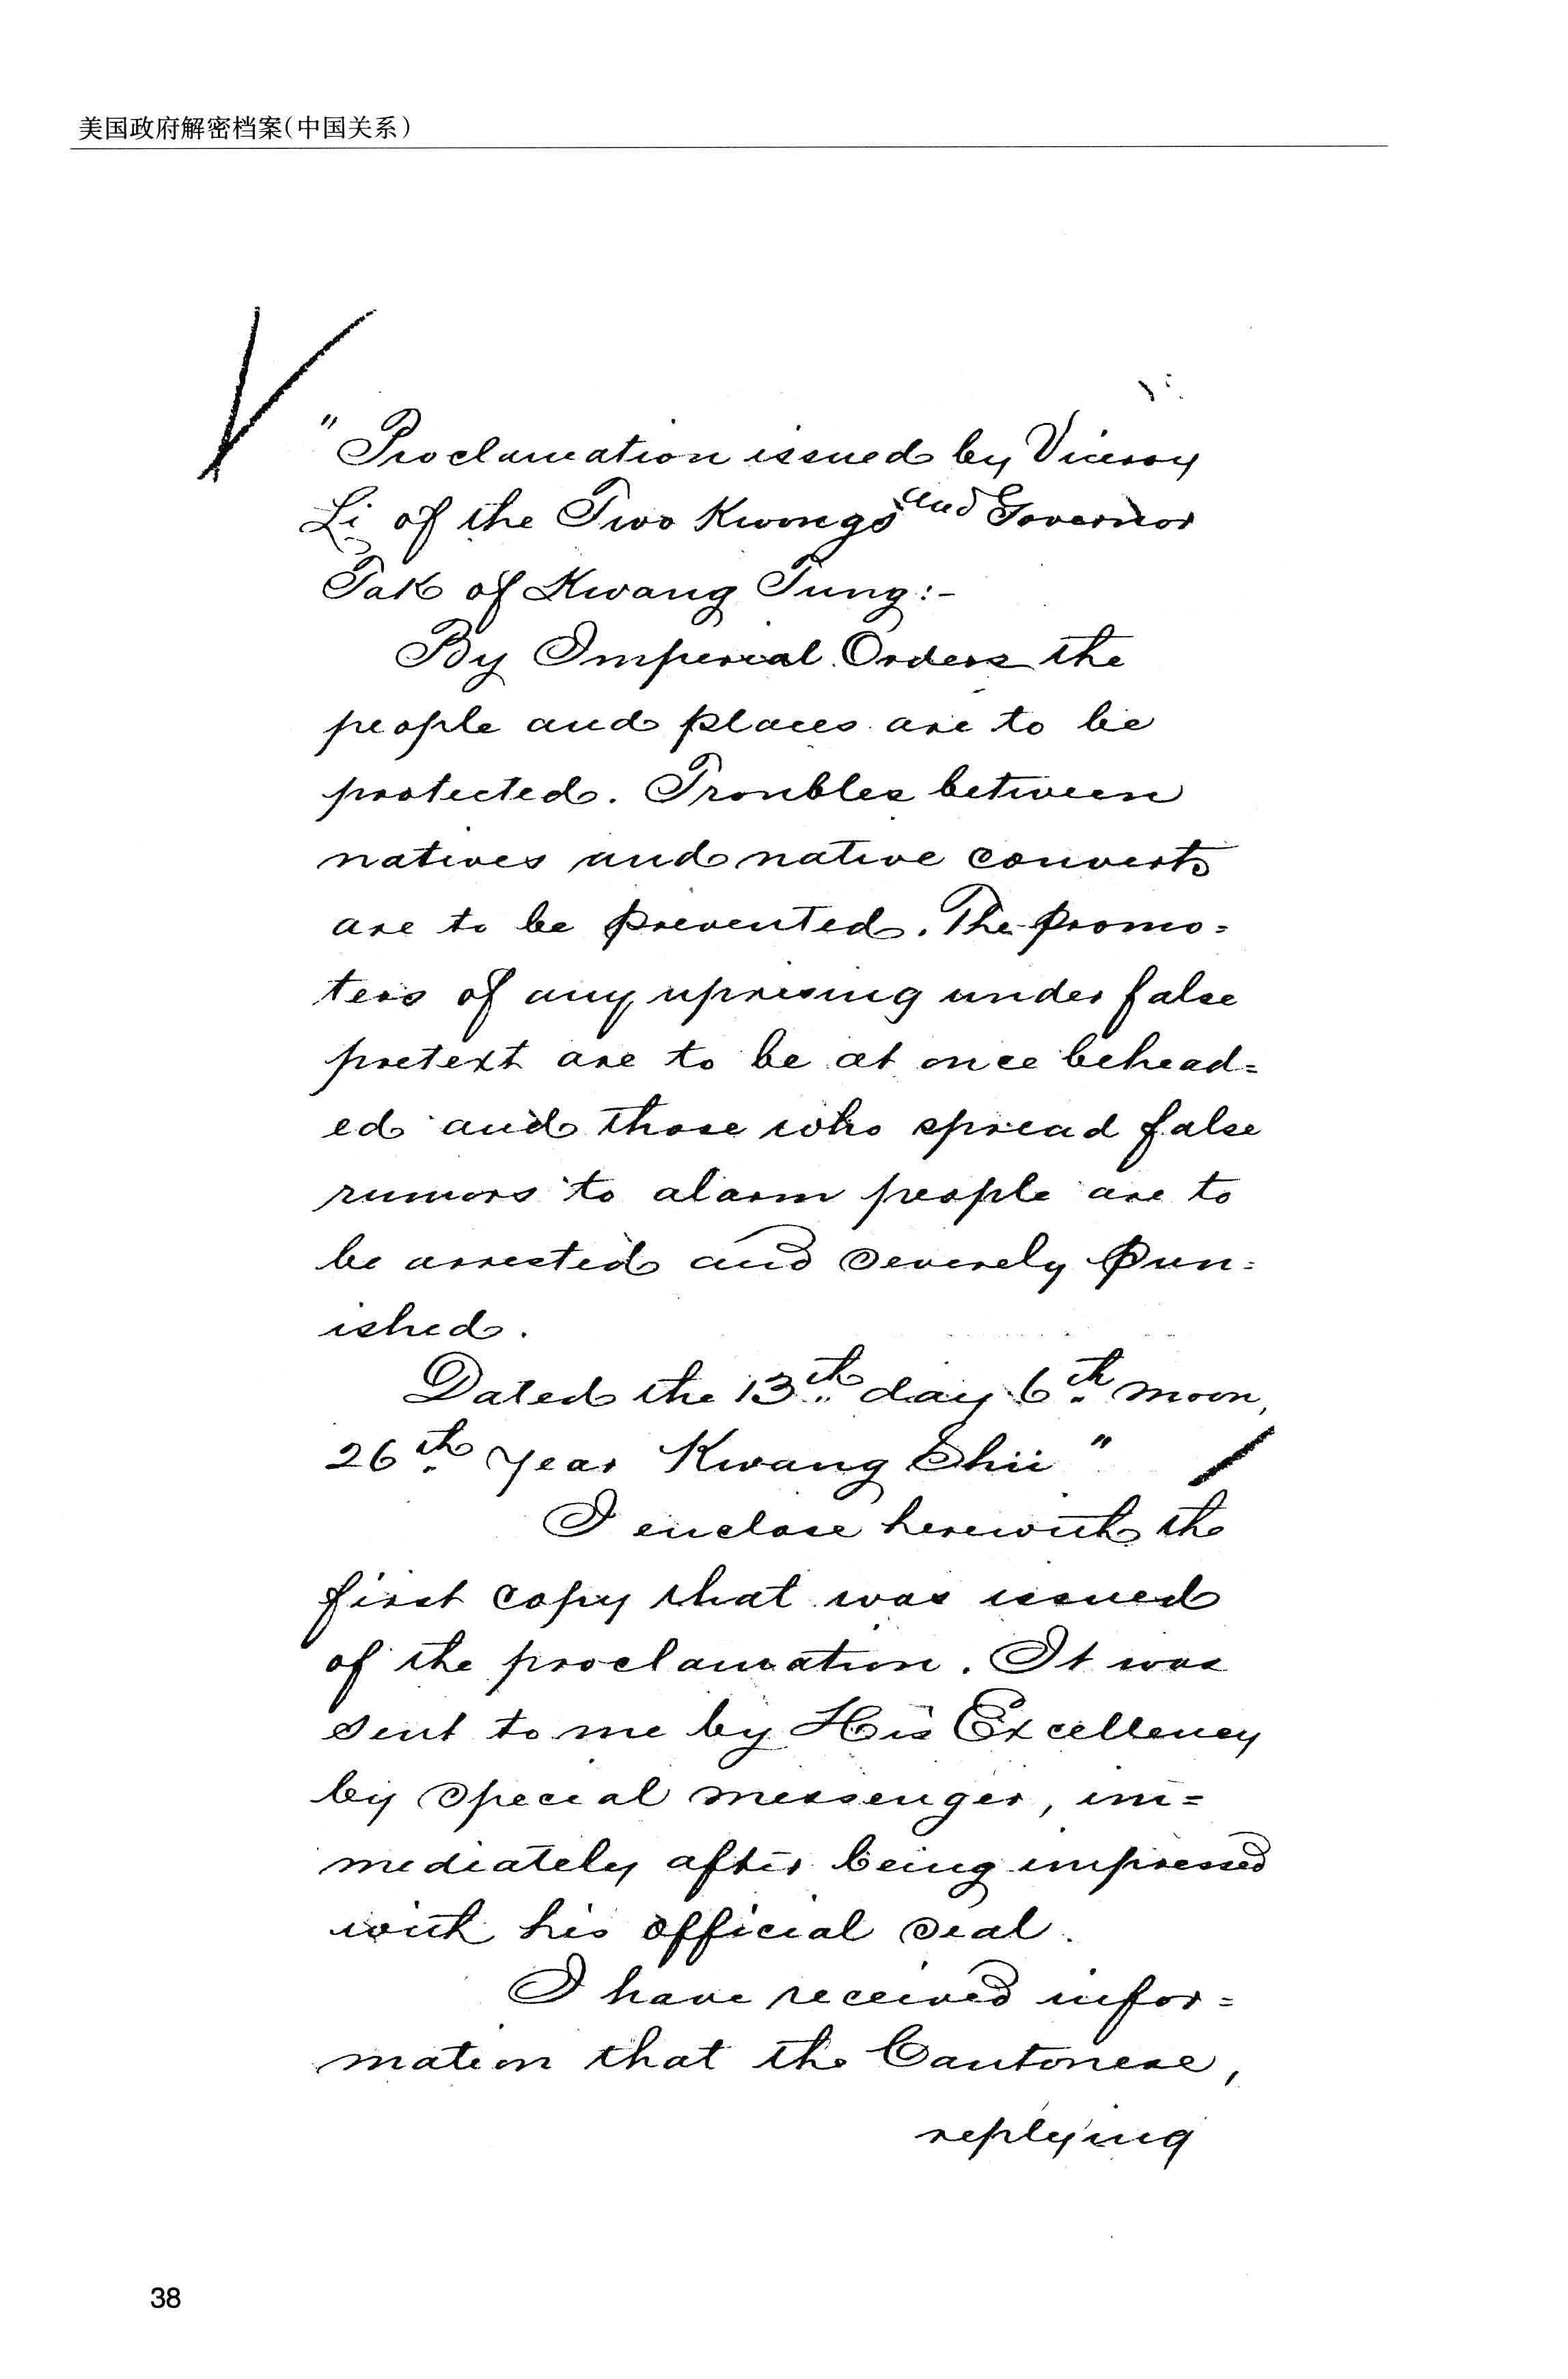 美国政府解密档案(中国关系)
"Proclamation issued by Viceroy
Li of the Two Kwongs and Governor
Tak of Kwang Tung:-
By Imperial Orders the
people and places are to be
protected. Troubles between
natives and native converts
are to be prevented. The promo=
ters of any uprising under false
pretext are to be at once behead=
ed and those who spread false
rumors to alarm people are to
be arrested and severely pun=
ished.
Dated the 13th day 6th moon,
26th Year Kwang Shii"
I enclose herewith the
first copy that was issued
of the proclamation. It was
sent to me by His Excellency
by special messenger, im=
mediately after being impressed
with his official seal.
I have received infor=
mation that the Cantonese,
replying
38